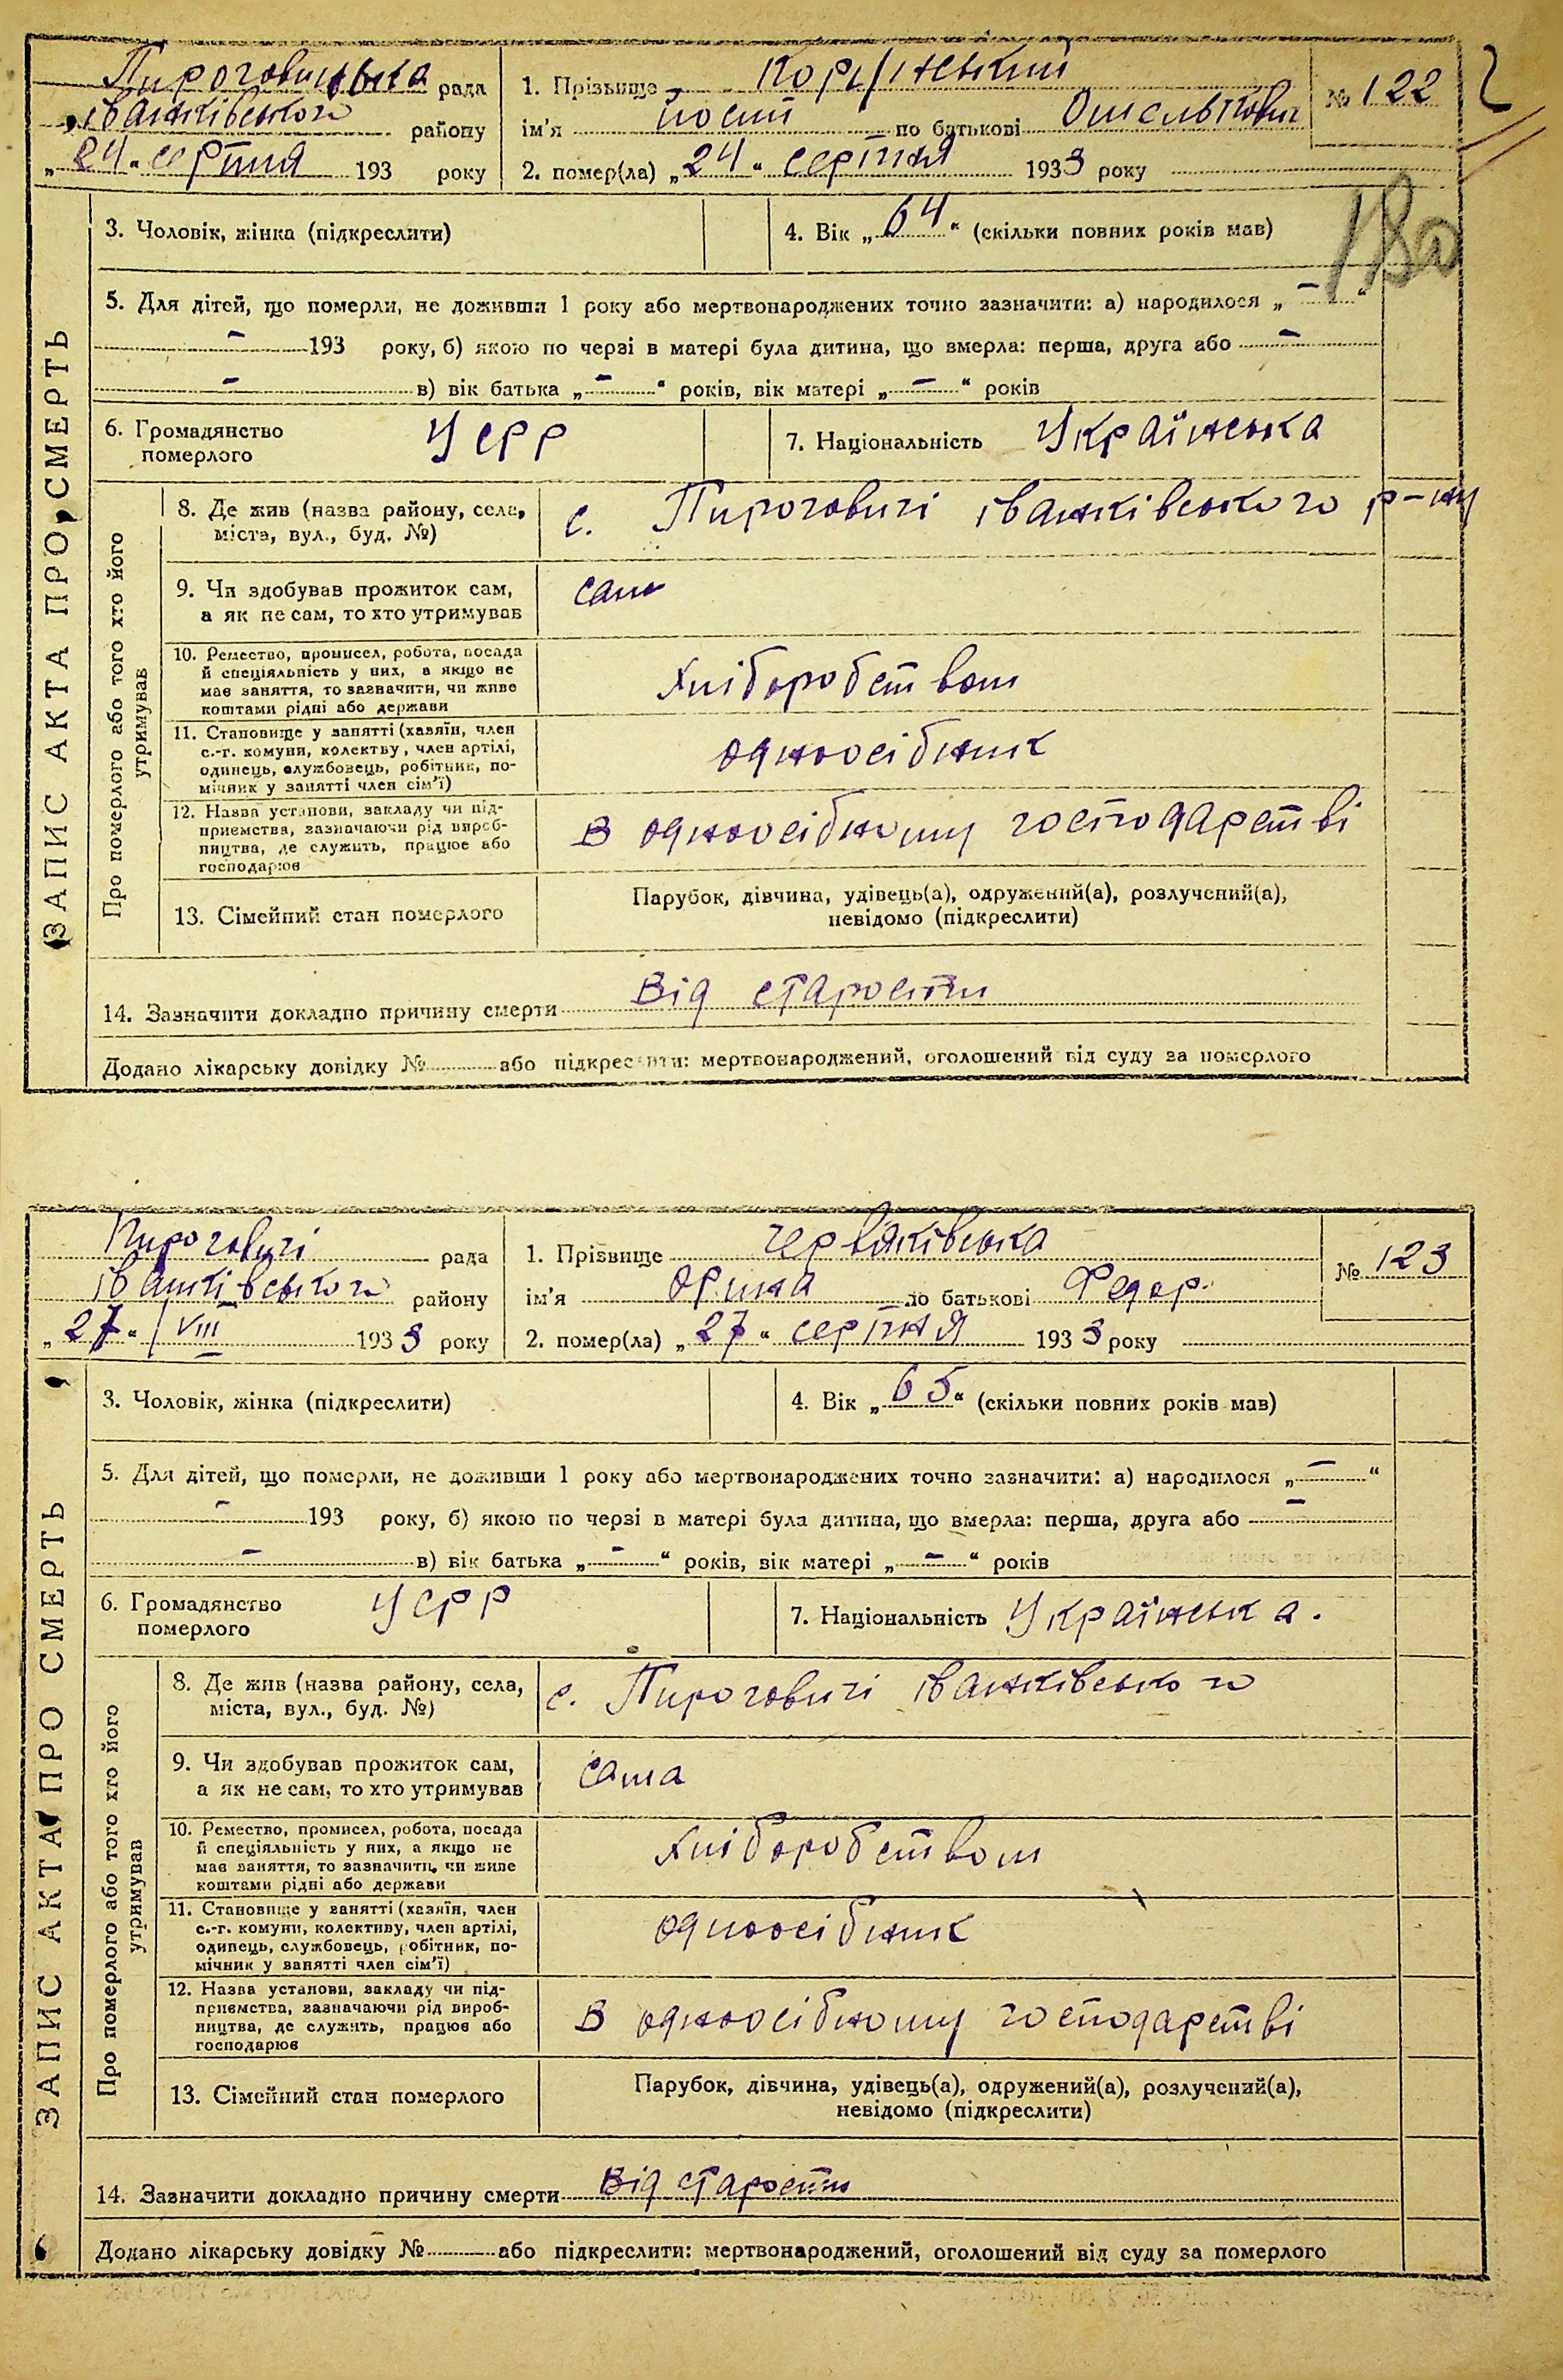 Пироговицька рада
іванківського району
„24“ серпня 193 року
1. Прізвище
ім'я йосип по батькові Омелькович
2. помер(ла) „24“ серпня 1933 року
№ 122
180
ЗАПИС АКТА ПРО СМЕРТЬ
3. Чоловік, жінка (підкреслити)
4. Вік „64“ (скільки повних років мав)
5. Для дітей, що померли, не доживши 1 року або мертвонароджених точно зазначити: а) народилося „ – “
– 193 року, б) якою по черзі в матері була дитина, що вмерла: перша, друга або –
– в) вік батька „ – “ років, вік матері „ – “ років
6. Громадянство
померлого
УСРР
7. Національність Українська
Про померлого або того хто його
утримував
8. Де жив (назва району, села,
міста, вул., буд. №)
с. Пироговичі іванківського р-ну
9. Чи здобував прожиток сам,
а як не сам, то хто утримував
сам
10. Ремество, промисел, робота, посада
й спеціяльність у них, а якщо не
має заняття, то зазначити, чи живе
коштами рідні або держави
хліборобством
11. Становище у занятті (хазяїн, член
с.-г. комуни, колективу, член артілі,
одинець, службовець, робітник, по-
мічник у занятті член сім'ї)
одноосібник
12. Назва установи, закладу чи під-
приємства, зазначаючи рід вироб-
ництва, де служить, працює або
господарює
в одноосібному господарстві
13. Сімейний стан померлого
Парубок, дівчина, удівець(а), одружений(а), розлучений(а),
невідомо (підкреслити)
14. Зазначити докладно причину смерти Від старости
Додано лікарську довідку № або підкреслити: мертвонароджений, оголошений від суду за померлого
Пироговичі рада
іванківського району
„27“ VIII 1933 року
1. Прізвище червяківська
ім'я орина по батькові Федор.
2. помер(ла) „27“ серпня 1933 року
№ 123
ЗАПИС АКТА ПРО СМЕРТЬ
3. Чоловік, жінка (підкреслити)
4. Вік „65“ (скільки повних років мав)
5. Для дітей, що померли, не доживши 1 року або мертвонароджених точно зазначити: а) народилося „ – “
– 193 року, б) якою по черзі в матері була дитина, що вмерла: перша, друга або –
– в) вік батька „ – “ років, вік матері „ – “ років
6. Громадянство
померлого
УСРР
7. Національність Українська.
Про померлого або того хто його
утримував
8. Де жив (назва району, села,
міста, вул., буд. №)
с. Пироговичі іванківського
9. Чи здобував прожиток сам,
а як не сам, то хто утримував
сама
10. Ремество, промисел, робота, посада
й спеціяльність у них, а якщо не
має заняття, то зазначити, чи живе
коштами рідні або держави
хліборобством
11. Становище у занятті (хазяїн, член
с.-г. комуни, колективу, член артілі,
одинець, службовець, робітник, по-
мічник у занятті член сім'ї)
одноосібник
12. Назва установи, закладу чи під-
приємства, зазначаючи рід вироб-
ництва, де служить, працює або
господарює
в одноосібному господарстві
13. Сімейний стан померлого
Парубок, дівчина, удівець(а), одружений(а), розлучений(а),
невідомо (підкреслити)
14. Зазначити докладно причину смерти Від старости
Додано лікарську довідку № або підкреслити: мертвонароджений, оголошений від суду за померлого